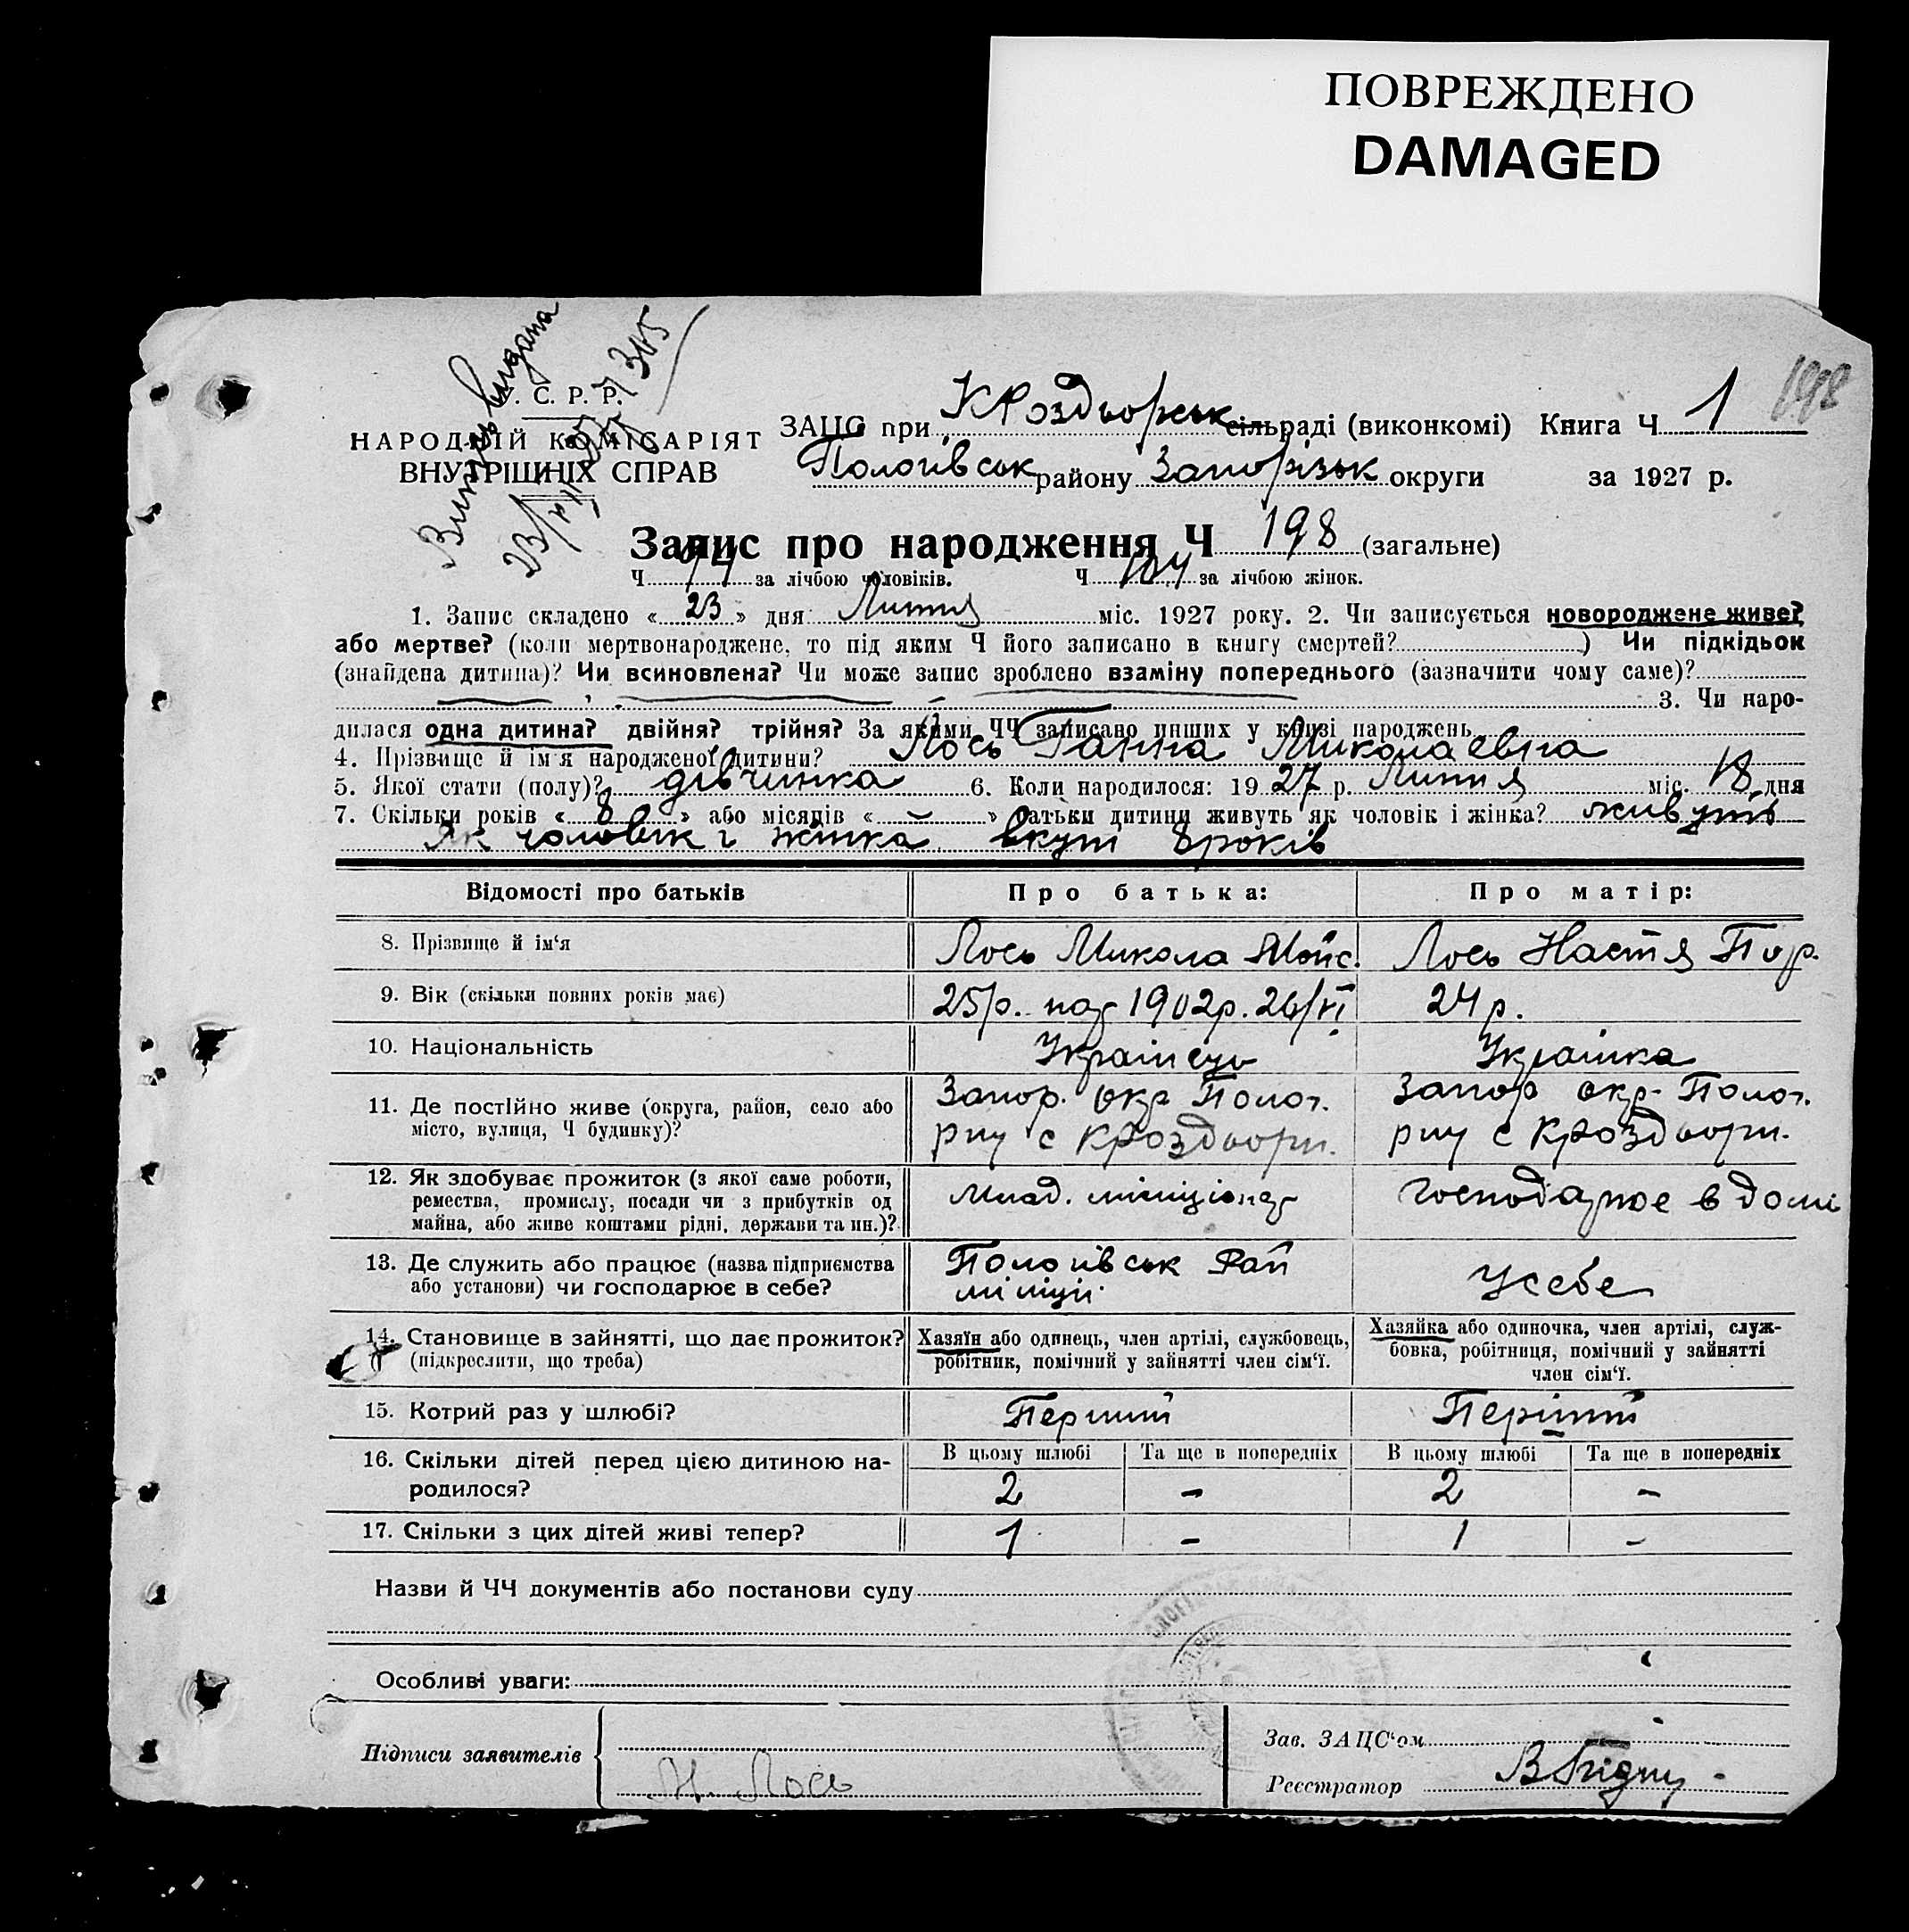 ПОВРЕЖДЕНО
DAMAGED
198
Виписъ видана
23/VII
С. Р. Р.
НАРОДНІЙ КОМІСАРІЯТ
ВНУТРІШНІХ СПРАВ
ЗАЦС при К Роздорськ сільраді (виконкомі) Книга Ч. 1
Пологівськ району Запорізьк округи за 1927 р.
Запис про народження Ч 198 (загальне)
Ч. 94 за лічбою чоловіків. Ч. 104 за лічбою жінок.
1. Запис складено « 23 » дня Липня міс. 1927 року. 2. Чи записується новороджене живе?
або мертве? (коли мертвонароджене, то під яким Ч його записано в книгу смертей? ) Чи підкідьок
(знайдена дитина)? Чи всиновлена? Чи може запис зроблено взаміну попереднього (зазначити чому саме)?
3. Чи наро-
дилася одна дитина? двійня? трійня? За якими ЧЧ записано инших у книзі народжень
4. Прізвище й ім'я народженої дитини? Лось Ганна Миколаевна
5. Якої стати (полу)? дівчинка 6. Коли народилося: 19 27 р. Липня міс. 18 дня
7. Скільки років « 8 » або місяців « – » батьки дитини живуть як чоловік і жінка? живуть
Як чоловік і жінка вкупі 8 років
Відомості про батьків Про батька: Про матір:
8. Прізвище й ім'я Лось Микола Мойс. Лось Настя
9. Вік (скільки повних років має) 25 р. 1902р. 26/VI 24 р.
10. Національність Українець Українка
11. Де постійно живе (округа, район, село або Запор. окр Полог. Запор окр. Полог.
місто, вулиця, Ч будинку)? рну с К Роздори. рну с К Роздори.
12. Як здобуває прожиток (з якої саме роботи, Млад. міліціонер господарює в домі
ремества, промислу, посади чи з прибутків од
майна, або живе коштами рідні, держави та ин.)?
13. Де служить або працює (назва підприємства Пологівськ Рай Усебе
або установи) чи господарює в себе? міліції
14. Становище в зайнятті, що дає прожиток? Хазяїн або одинець, член артілі, службовець, Хазяйка або одиночка, член артілі, служ-
(підкреслити, що треба) робітник, помічний у зайнятті член сім'ї. бовка, робітниця, помічний у зайнятті
член сім'ї.
15. Котрий раз у шлюбі? Перший Перший
16. Скільки дітей перед цією дитиною на- В цьому шлюбі Та ще в попередніх В цьому шлюбі Та ще в попередніх
родилося? 2 – 2 –
17. Скільки з цих дітей живі тепер? 1 – 1 –
Назви й ЧЧ документів або постанови суду
Особливі уваги:
Підписи заявителів Зав. ЗАЦС'ом
М. Лось Реєстратор